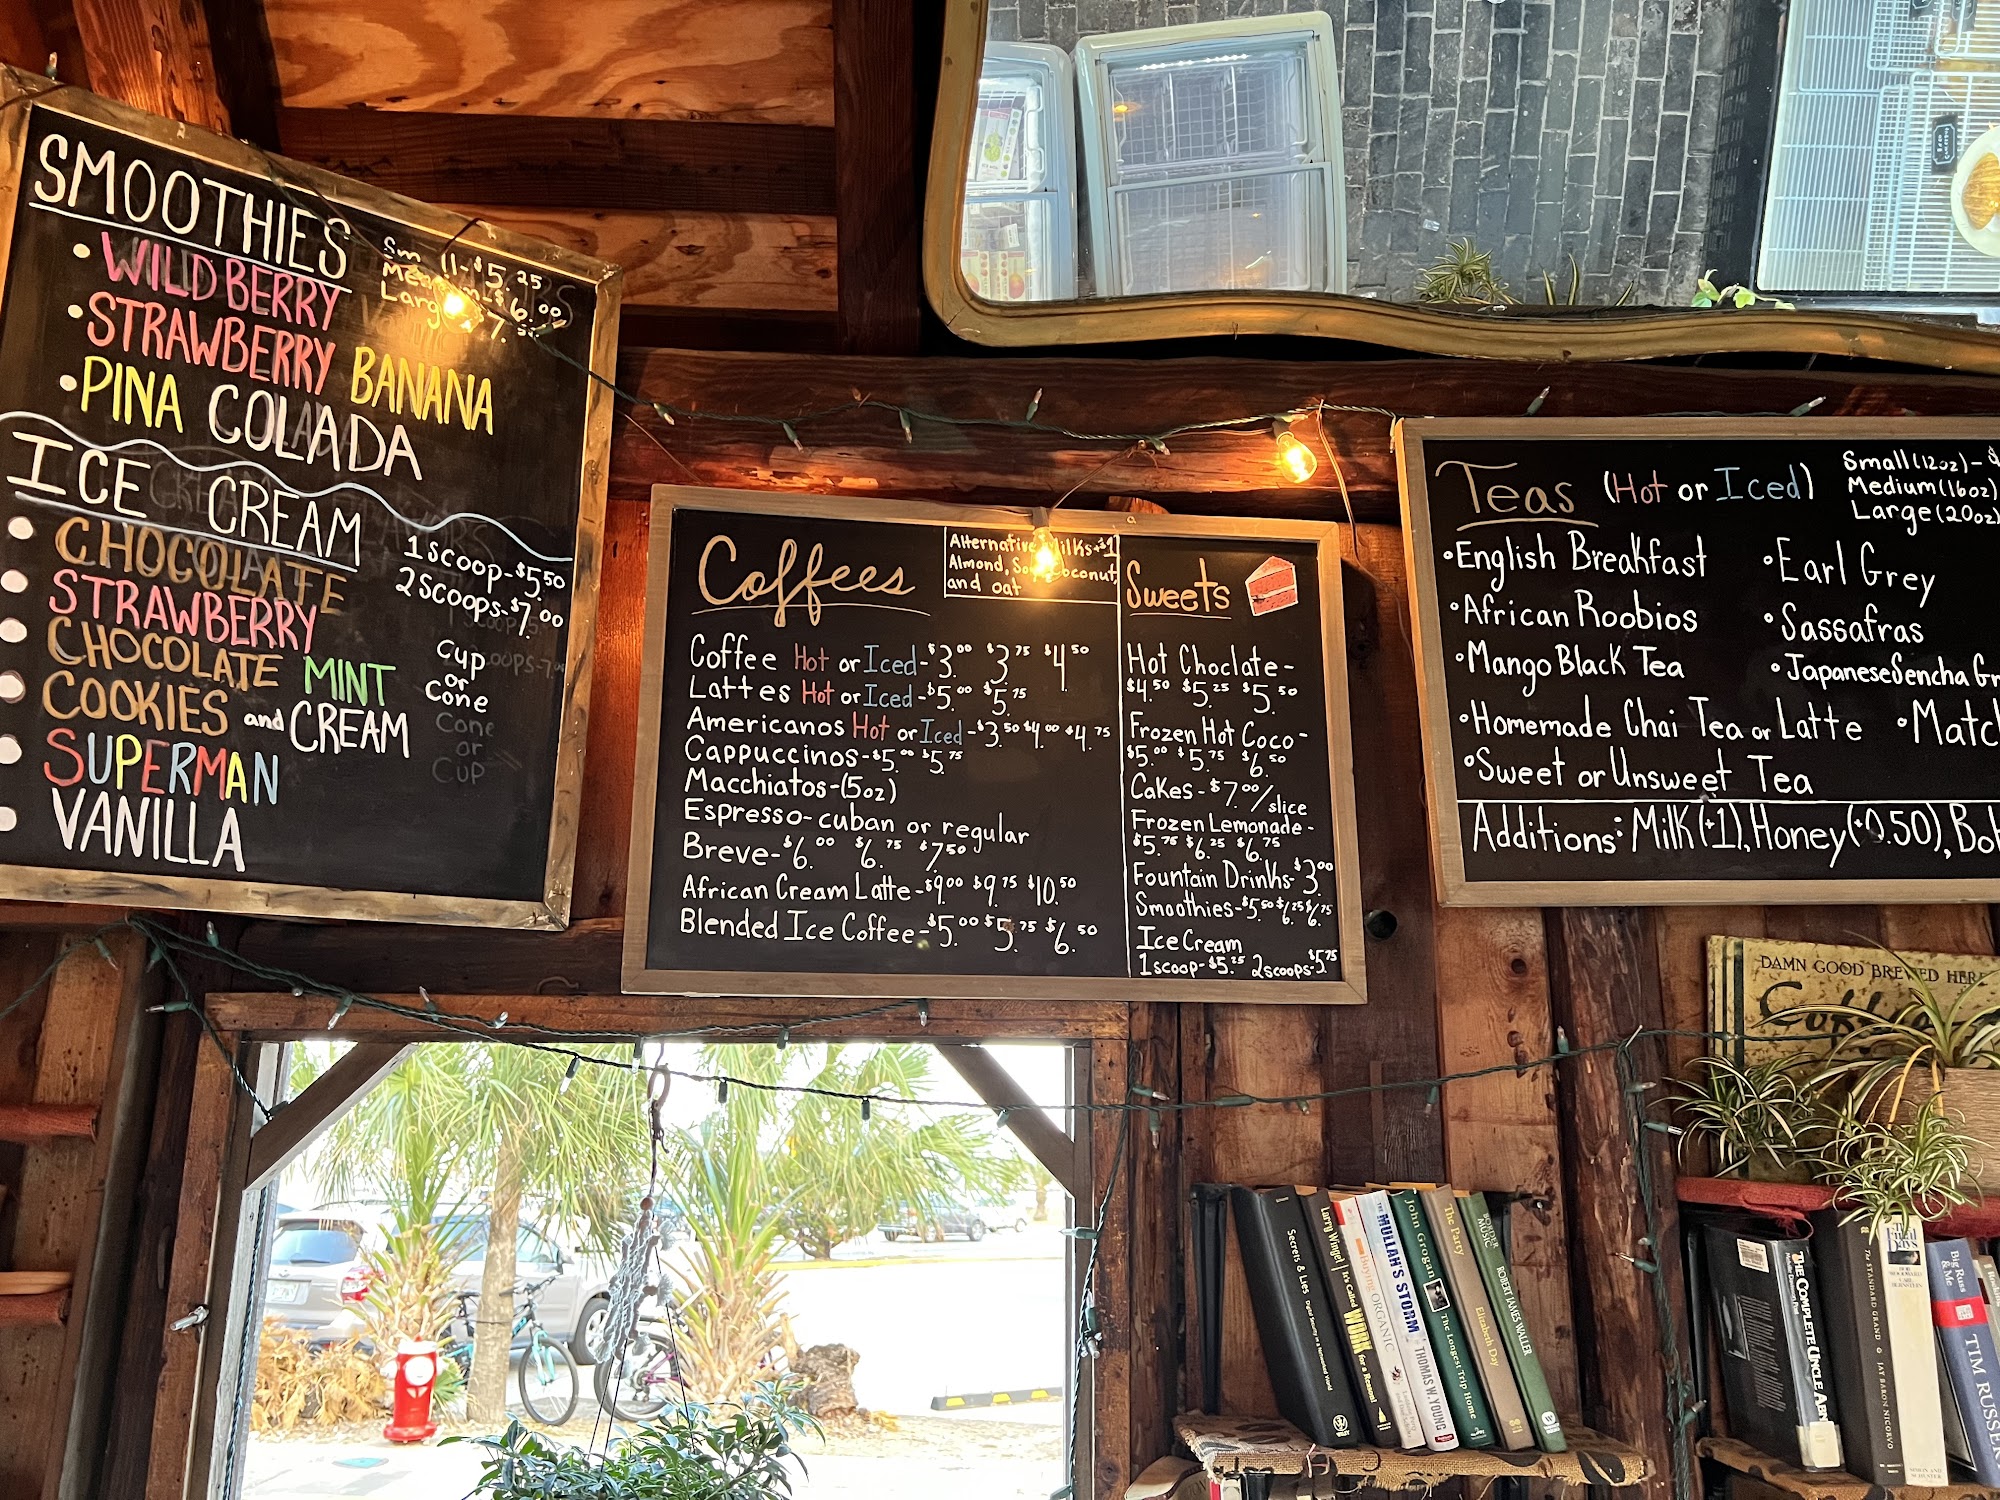 SMOOTHIES
Small-$5.25
Medium-$6.00
Large-$7.50
• WILDBERRY
• STRAWBERRY BANANA
• PINA COLADA
ICE CREAM
CHOCOLATE
STRAWBERRY
CHOCOLATE MINT
COOKIES and CREAM
SUPERMAN
VANILLA
1 SCOOP-$5.50
2 SCOOPS-$7.00
Cup
or
Cone
Cone
or
Cup
Coffees
Alternative Milks+$1
Almond, Soy, Coconut,
and oat
Coffee Hot or Iced-$3.00 $3.75 $4.50
Lattes Hot or Iced-$5.00 $5.75
Americanos Hot or Iced-$3.50 $4.00 $4.75
Cappuccinos-$5.00 $5.75
Macchiatos-(5oz)
Espresso-cuban or regular
Breve-$6.00 $6.75 $7.50
African Cream Latte-$9.00 $9.75 $10.50
Blended Ice Coffee-$5.00 $5.75 $6.50
Sweets
Hot Choclate-
$4.50 $5.25 $5.50
Frozen Hot Coco-
$5.00 $5.75 $6.50
Cakes-$7.00/slice
Frozen Lemonade-
$5.75 $6.25 $6.75
Fountain Drinks-$3.00
Smoothies-$5.50 $6.25 $6.75
Ice Cream
1scoop-$5.25 2scoops-$5.75
Teas (Hot or Iced)
Small(12oz)-$
Medium(16oz)
Large(20oz)
•English Breakfast •Earl Grey
•African Roobios •Sassafras
•Mango Black Tea •Japanese Sencha Gr
•Homemade Chai Tea or Latte •Matc
•Sweet or Unsweet Tea
Additions: Milk(+1), Honey(+0.50), Bo
DAMN GOOD BREWED HERE
Coffee
Secrets & Lies Digital Security in a Networked World
WILEY
Larry Winget It's Called WORK for a Reason!
Buying ORGANIC
THE MULLAH'S STORM THOMAS W. YOUNG
John Grogan The Longest Trip Home
The Party Elizabeth Day
BORDER MUSIC ROBERT JAMES WALLER
THE COMPLETE UNCLE ABN
THE STANDARD GRAND JAY BARON NICORVO
The Final Days BOB WOODWARD CARL BERNSTEIN
SIMON AND SCHUSTER
Big Russ & Me TIM RUSSERT